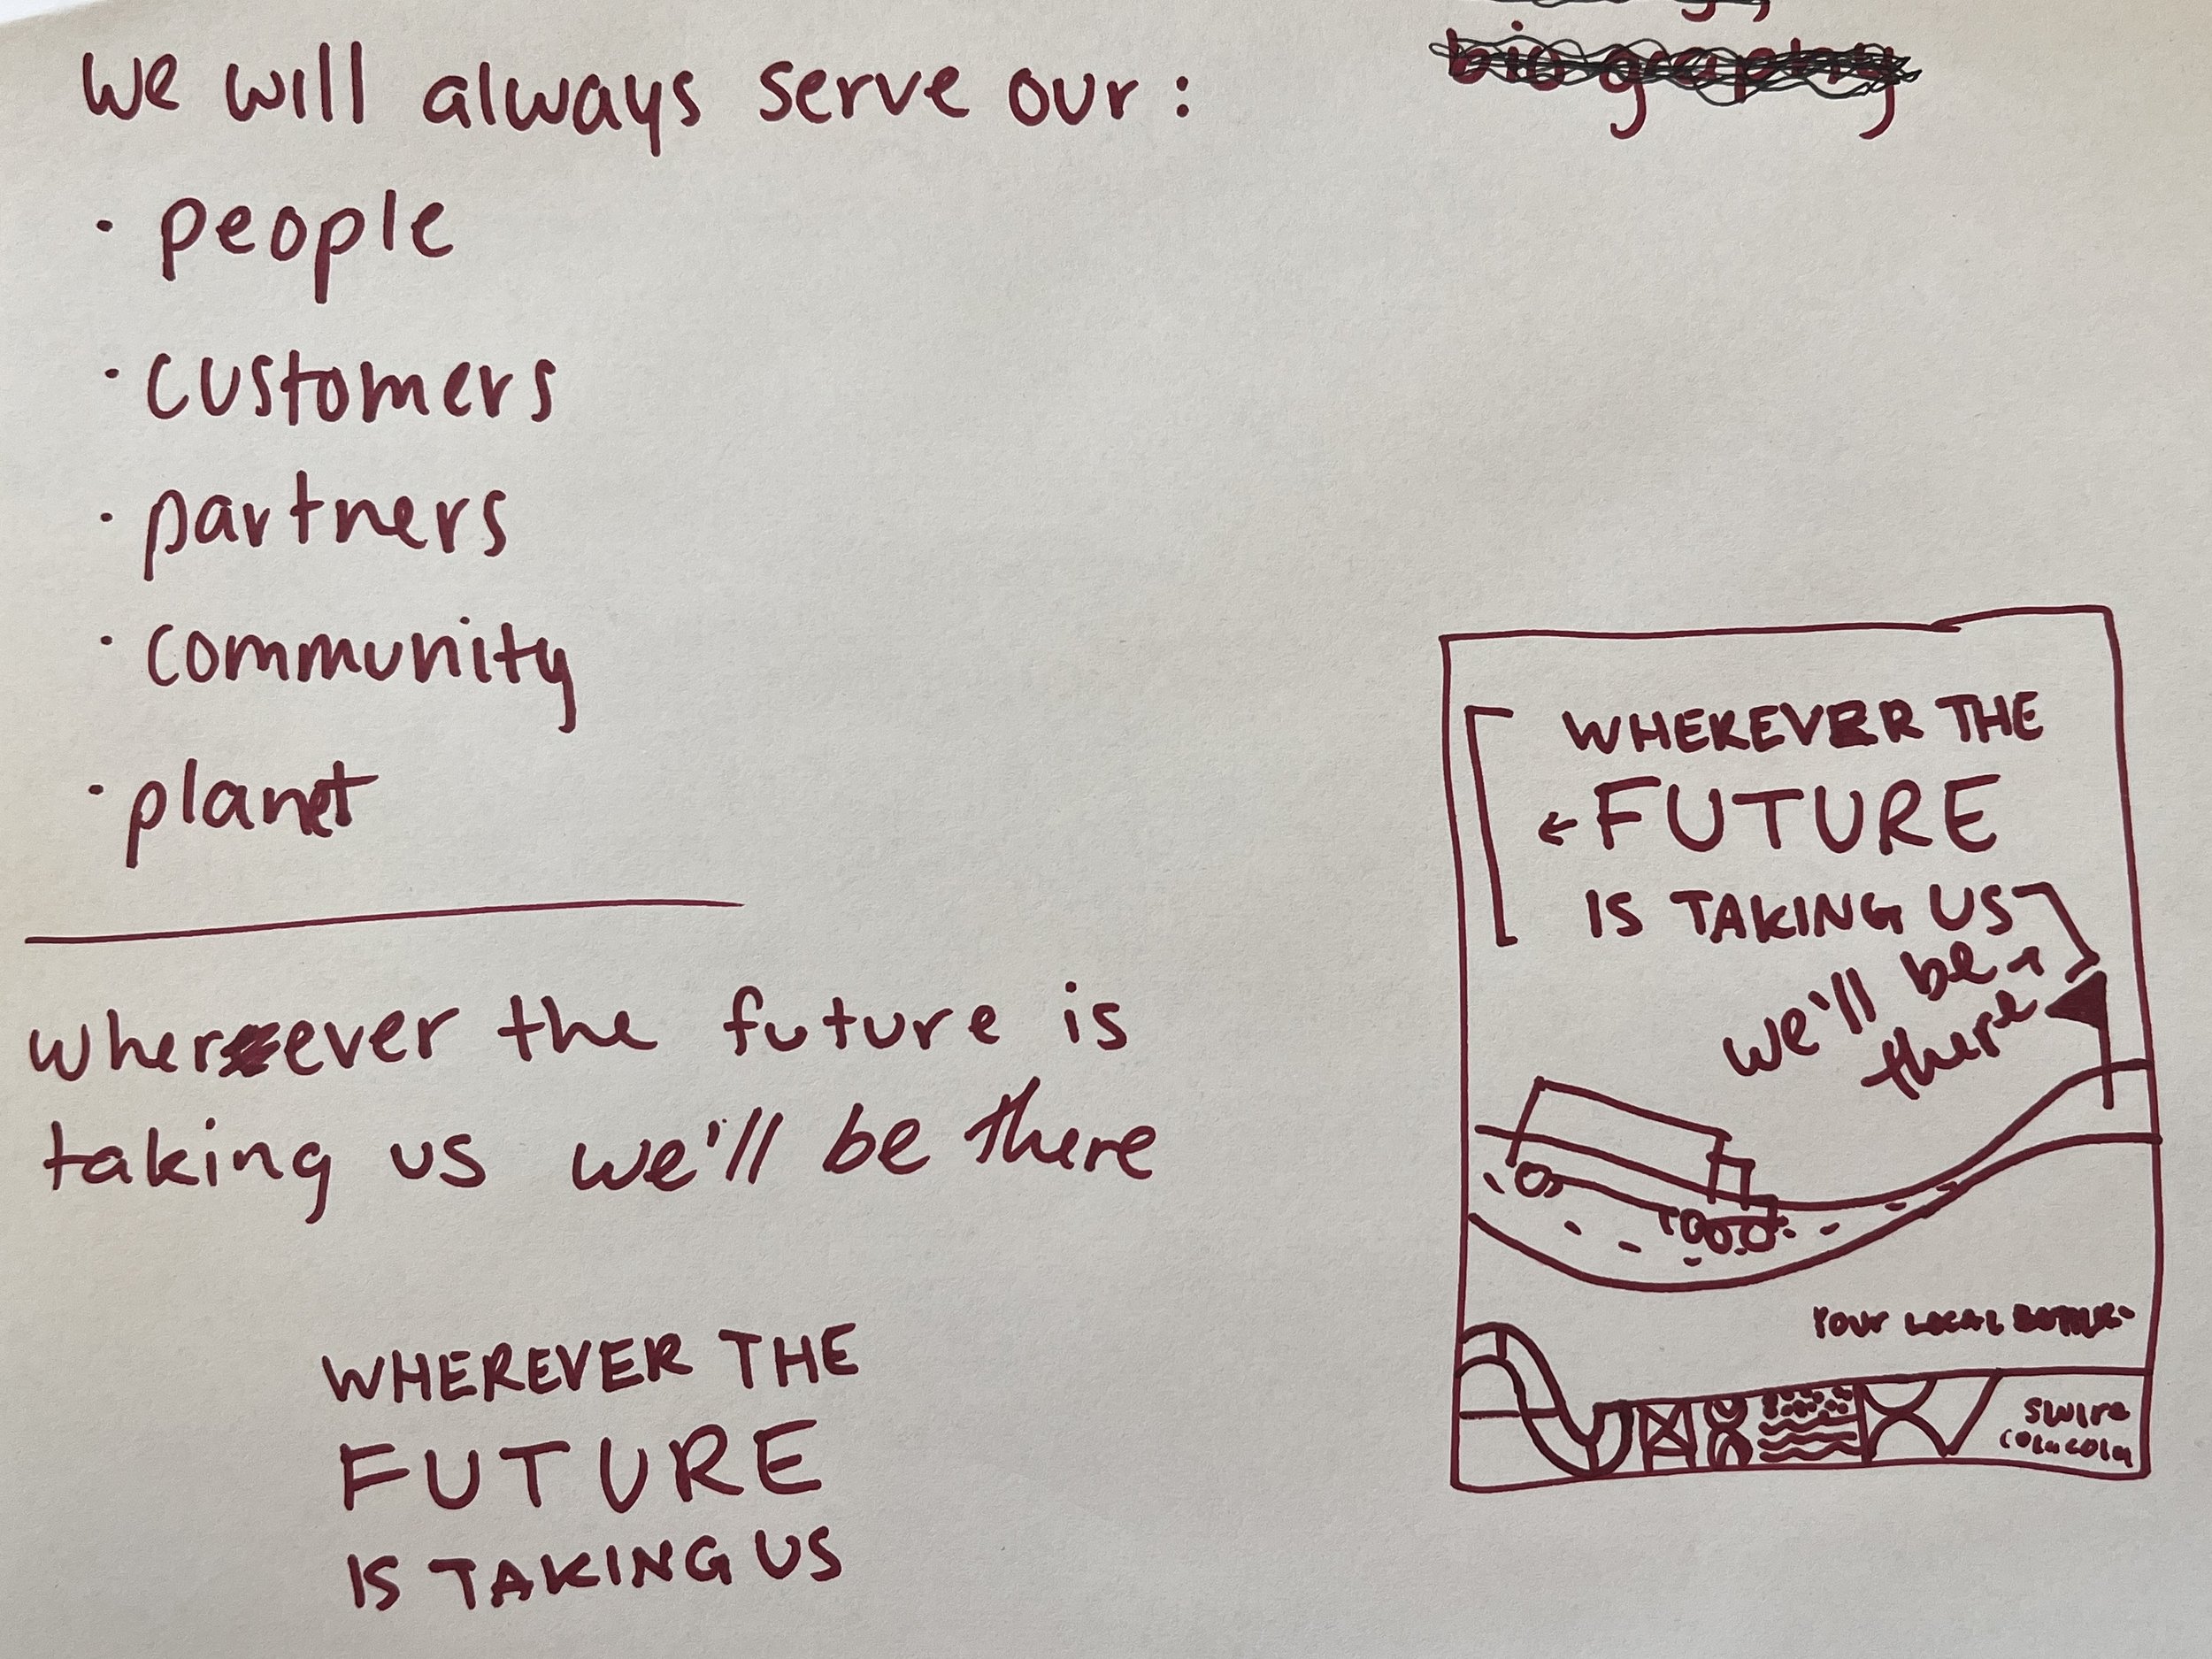 we will always serve our:
· people
· customers
· partners
· community
· planet
wherever the future is
taking us we'll be there
WHEREVER THE
FUTURE
IS TAKING US
biography
WHEREVER THE
←FUTURE
IS TAKING US
we'll be
there
YOUR LOCAL
SWIRE
COCACOLA